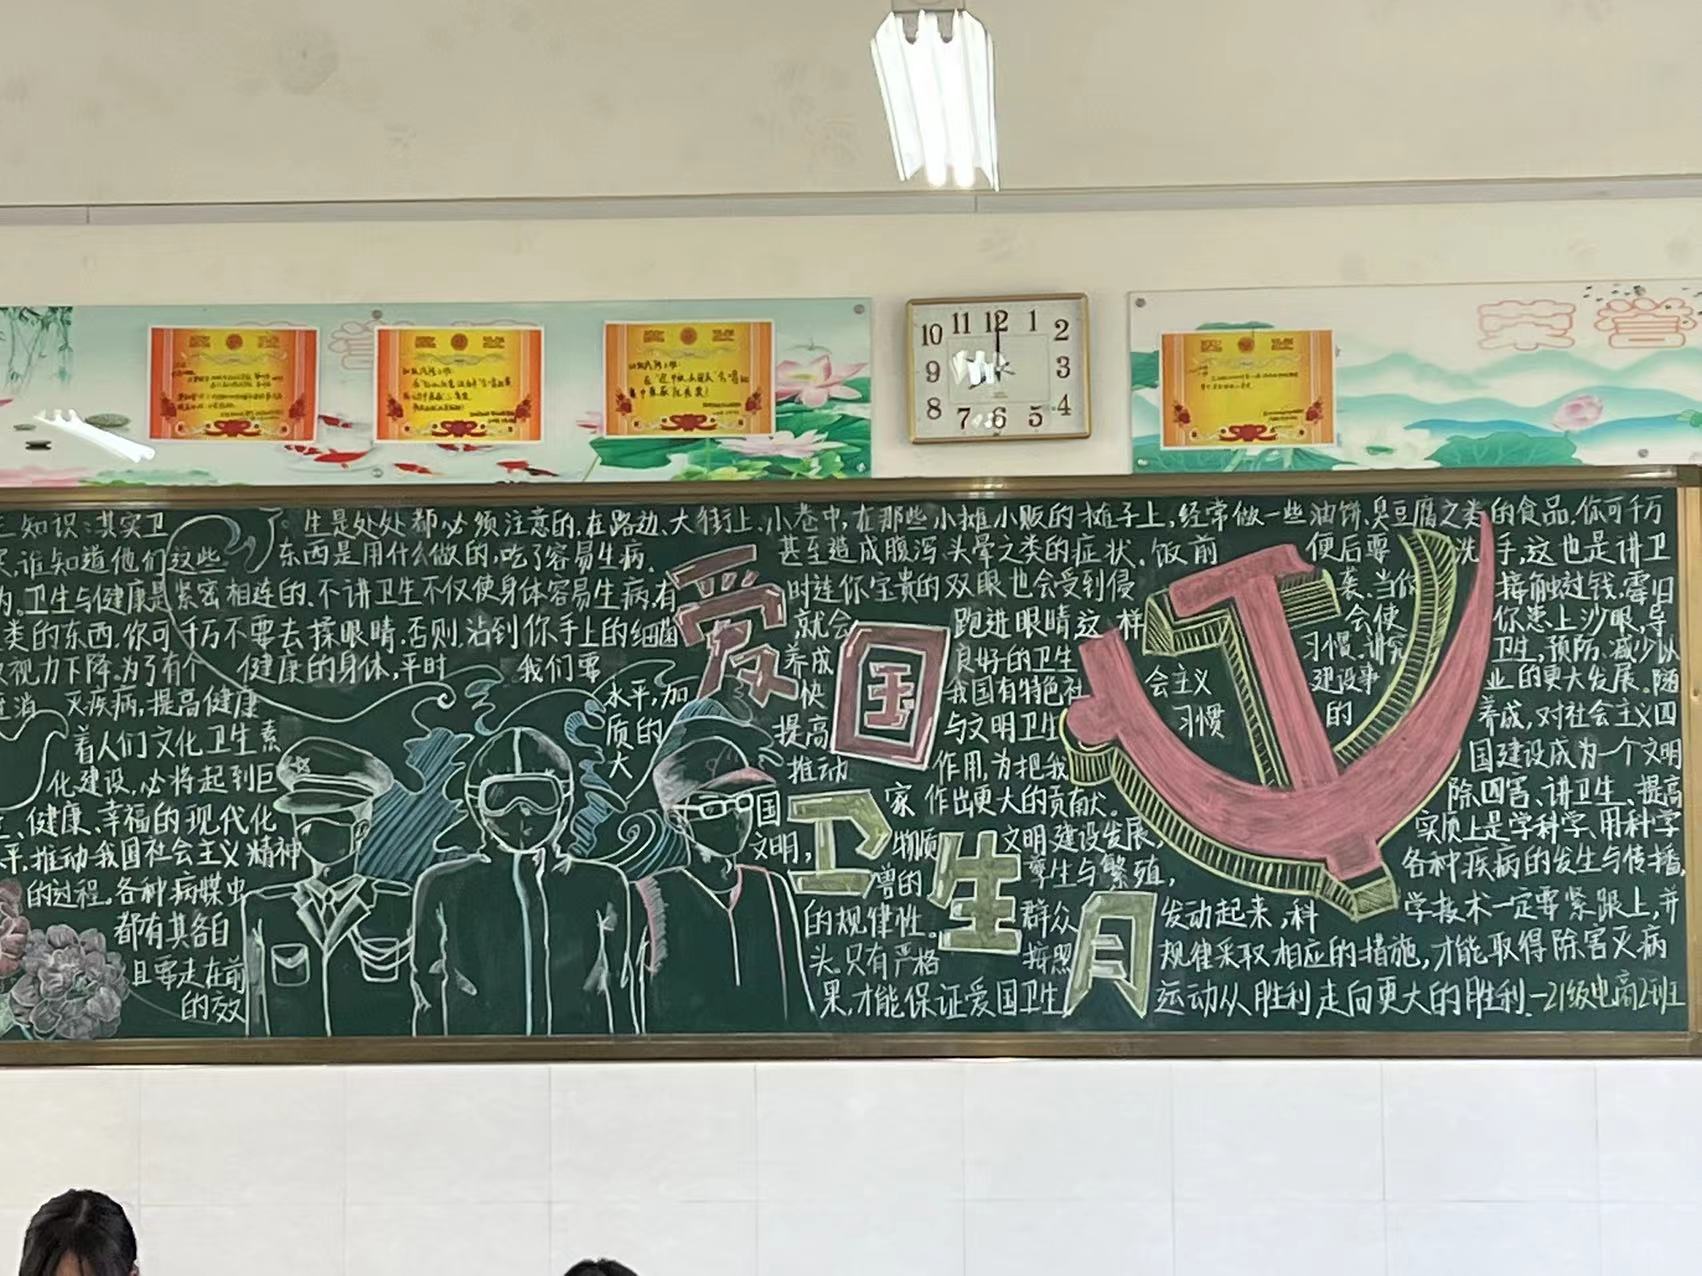 荣誉
10 11 12 1 2
9 3
8 7 6 5 4
知识:其实卫生是处处都必须注意的,在路边、大街上、小巷中,在那些小摊小贩的摊子上,经常做一些油饼、臭豆腐之类的食品,你可千万
谁知道他们这些东西是用什么做的,吃了容易生病,甚至造成腹泻、头晕之类的症状。饭前便后要洗手,这也是讲卫
卫生与健康是紧密相连的,不讲卫生不仅使身体容易生病,有时连你宝贵的双眼也会受到侵袭。当你接触过钱、霉旧
类的东西,你可千万不要去揉眼睛,否则,沾到你手上的细菌就会跑进眼睛这样会使你患上沙眼,导
视力下降。为了有个健康的身体,平时我们要养成良好的卫生习惯,讲究卫生,预防、减少以
消灭疾病,提高健康水平,加快我国有特色社会主义建设事业的更大发展。随
着人们文化卫生素质的提高与文明卫生习惯的养成,对社会主义四
化建设,必将起到巨大推动作用,为把我国建设成为一个文明
健康、幸福的现代化国家作出更大的贡献。除四害、讲卫生、提高
平,推动我国社会主义精神文明,物质文明建设发展,实质上是学科学、用科学
的过程。各种病媒虫孳生与繁殖,各种疾病的发生与传播,
都有其各自的规律性。群众发动起来,科学技术一定要紧跟上,并
且要走在前头。只有严格按照规律采取相应的措施,才能取得除害灭病
的效果,才能保证爱国卫生运动从胜利走向更大的胜利.—21级电商2班
爱国
卫生月